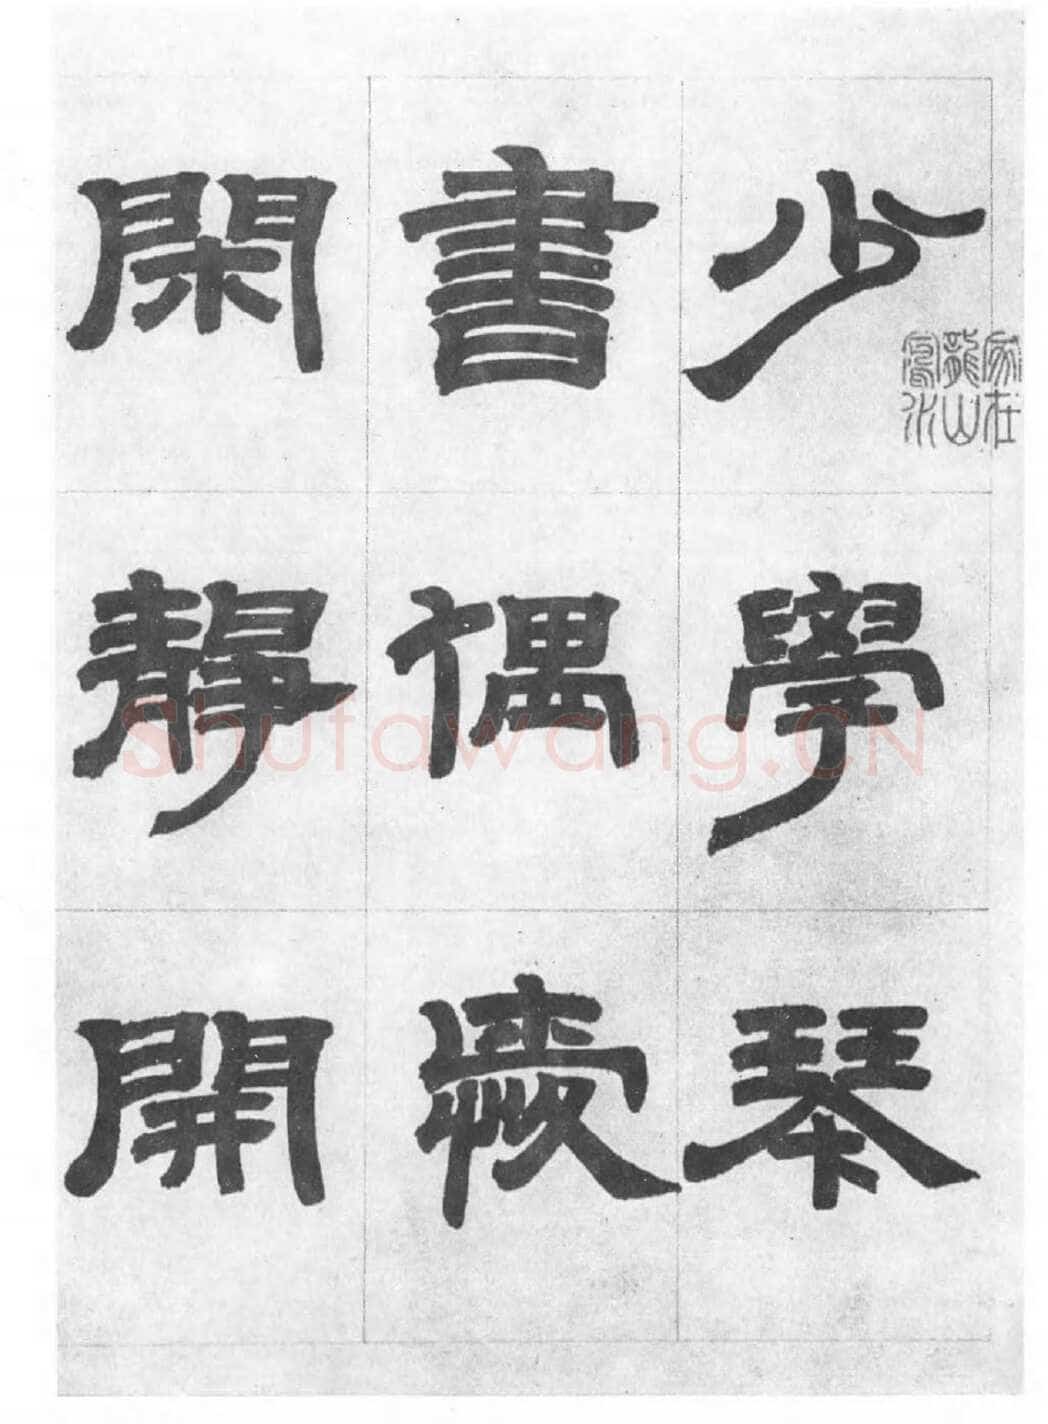 少學琴
書偶愛
閑靜開
家在
龍山
鳳水
Shufawang.CN